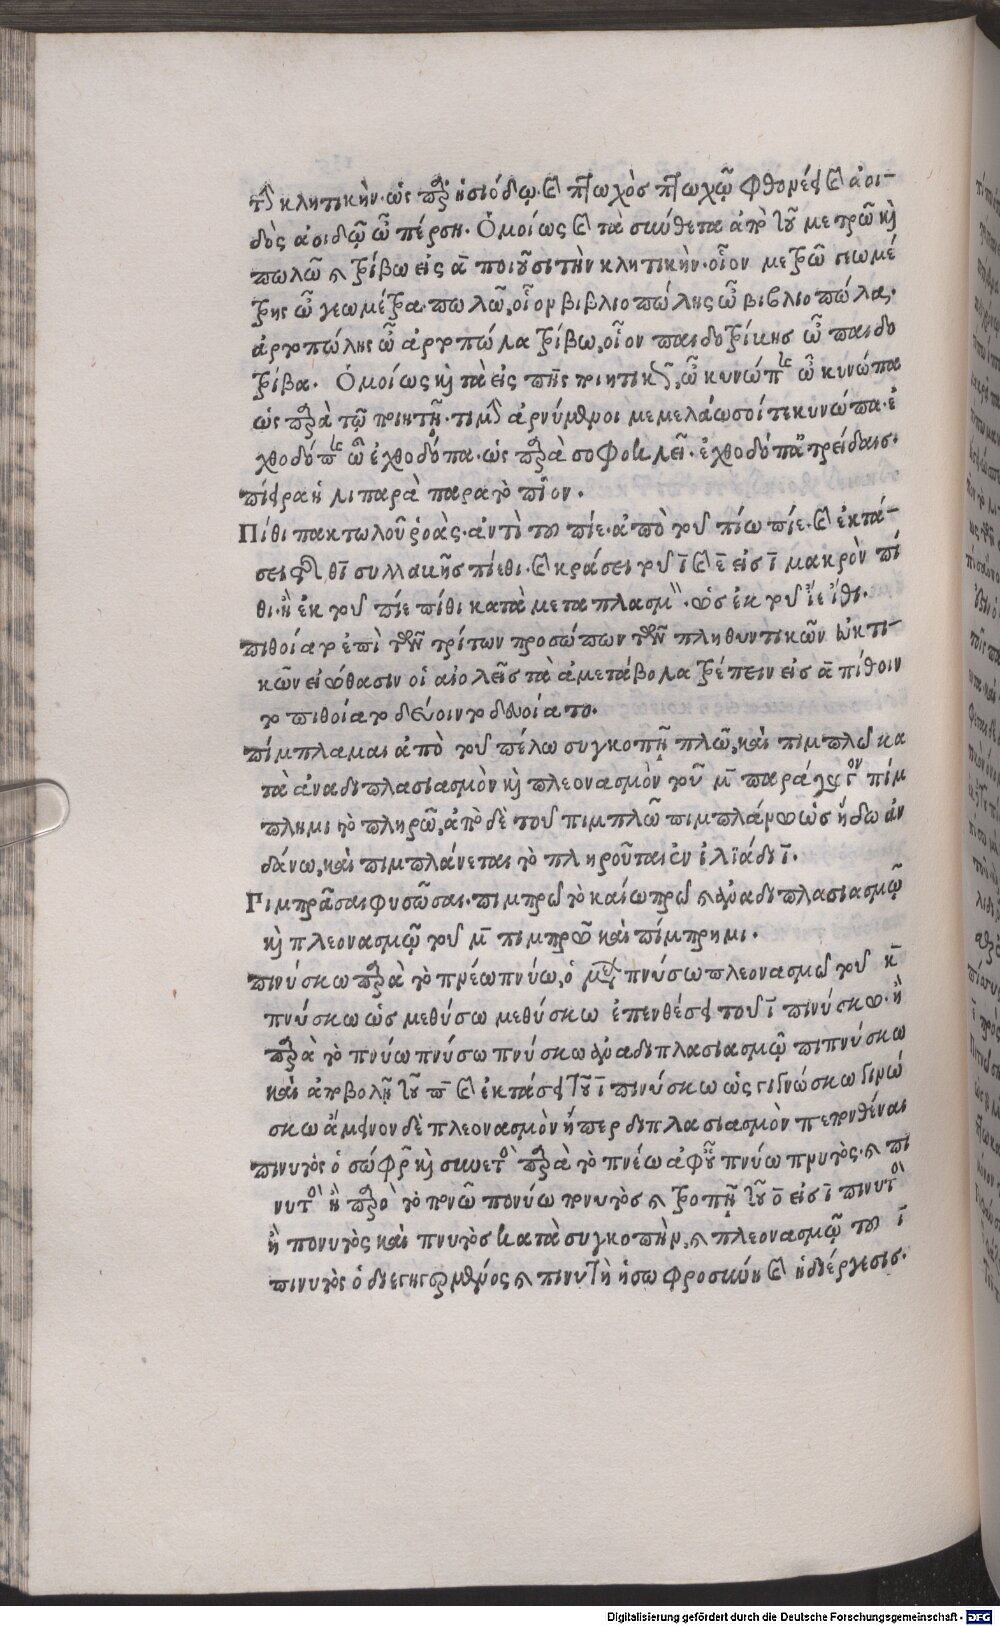 τὴν κλητικήν· ὡς παρ' ἡσιόδῳ· καὶ πτωχὸς πτωχῷ φθονέει καὶ ἀοι-
δὸς ἀοιδῷ ὦ πέρση. Ὁμοίως καὶ τὰ σύνθετα ἀπὸ τοῦ μετρῶ καὶ
πωλῶ καὶ τρίβω εἰς α̅ ποιοῦσι τὴν κλητικήν· οἷον μετρῶ γεωμέ
τρης ὦ γεωμέτρα· πωλῶ, οἷον βιβλιοπώλης ὦ βιβλιοπώλα,
ἀρτοπώλης ὦ ἀρτοπώλα τρίβω, οἷον παιδοτρίβης ὦ παιδο
τρίβα. Ὁμοίως καὶ τὰ εἰς πης ποιητικὰ, ὦ κυνώπης ὦ κυνώπα
ὡς παρὰ τῷ ποιητῇ· τιμὴν ἀρνύμενοι μενελάω σοί τε κυνώπα· ἐ
χθοδόπης ὦ ἐχθοδόπα· ὡς παρὰ σοφοκλεῖ· ἐχθοδόπ' ἀτρείδαις.
πίειρα ἡ λιπαρὰ παρὰ τὸ πῖον.
Πίθι πακτωλοῦ ῥοὰς· ἀντὶ τοῦ πίε· ἀπὸ τοῦ πίω πίε· καὶ ἐκτά-
σει τῆς θι συλλαβῆς πίεθι· καὶ κράσει τοῦ ι̅ καὶ ε̅ εἰς ι̅ μακρὸν πί
θι· ἢ ἐκ τοῦ πίε πίθι κατὰ μεταπλασμὸν· ὡς ἐκ τοῦ ἴε ἴθι.
πιθοίατο ἐπὶ τῶν τρίτων προσώπων τῶν πληθυντικῶν εὐκτι-
κῶν εἰώθασιν οἱ αἰολεῖς τὰ ἀμετάβολα τρέπειν εἰς α̅ πίθοιν
το πιθοίατο δεύοιντο δευοίατο.
πίμπλαμαι ἀπὸ τοῦ πέλω συγκοπῇ πλῶ, καὶ πιμπλῶ κα
τὰ ἀναδιπλασιασμὸν καὶ πλεονασμὸν τοῦ μ̅ παράγωγον πίμ
πλημι τὸ πληρῶ, ἀπὸ δὲ τοῦ πιμπλῶ πιμπλάνω ὡς ἥδω ἁν
δάνω, καὶ πιμπλάνεται τὸ πληροῦται ἐν ἰλιάδι ι̅.
Πιμπρᾶσαι φυσῶσαι· πιμπρῶ τὸ καίω πρῶ καὶ ἀναδιπλασιασμῷ
καὶ πλεονασμῷ τοῦ μ̅ πιμπρῶ καὶ πίμπρημι.
πινύσκω παρὰ τὸ πνέω πνύω, ὁ μέλλων πνύσω πλεονασμῷ τοῦ κ̅
πνύσκω ὡς μεθύσω μεθύσκω ἐπενθέσει τοῦ ι̅ πινύσκω· ἢ
παρὰ τὸ πνύω πνύσω πνύσκω ἀναδιπλασιασμῷ πιπνύσκω
καὶ ἀποβολῇ τοῦ π̅ καὶ ἐκτάσει τοῦ ι̅ πινύσκω ὡς γιγνώσκω γινώ
σκω ἄμεινον δὲ πλεονασμὸν ἤπερ διπλασιασμὸν πεπονθέναι
πινυτὸς ὁ σώφρων καὶ συνετὸς παρὰ τὸ πνέω ἀφ' οὗ πνύω πνυτὸς· καὶ πι
νυτὸς ἢ παρὰ τὸ πνῶ πονύω πνυτὸς καὶ τροπῇ τοῦ ο̅ εἰς ι̅ πινυτὸς
ἢ πονυτὸς καὶ πνυτὸς κατὰ συγκοπὴν, καὶ πλεονασμῷ τοῦ ι̅
πινυτὸς ὁ διεγηγερμένος καὶ πινυτὴ ἡ σωφροσύνη καὶ ἡ διέργεσις.
Digitalisierung gefördert durch die Deutsche Forschungsgemeinschaft - DFG